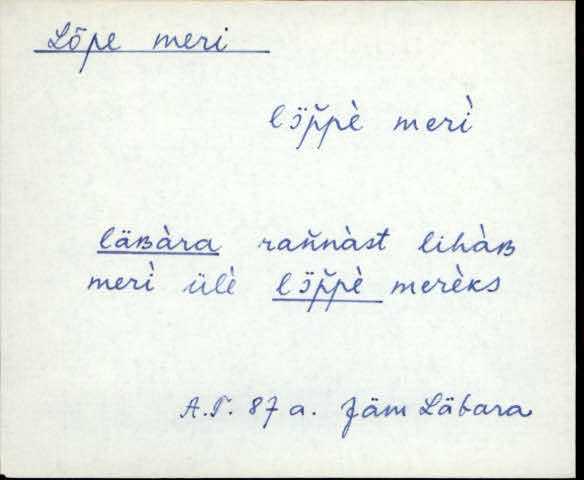 Lõpe meri
lɔ̈p̆pè merì
läʙàra ran̆nàst lihàʙ
merì ülè lɔ̈p̆pè merèks
A.T. 87 a. Jäm Läbara